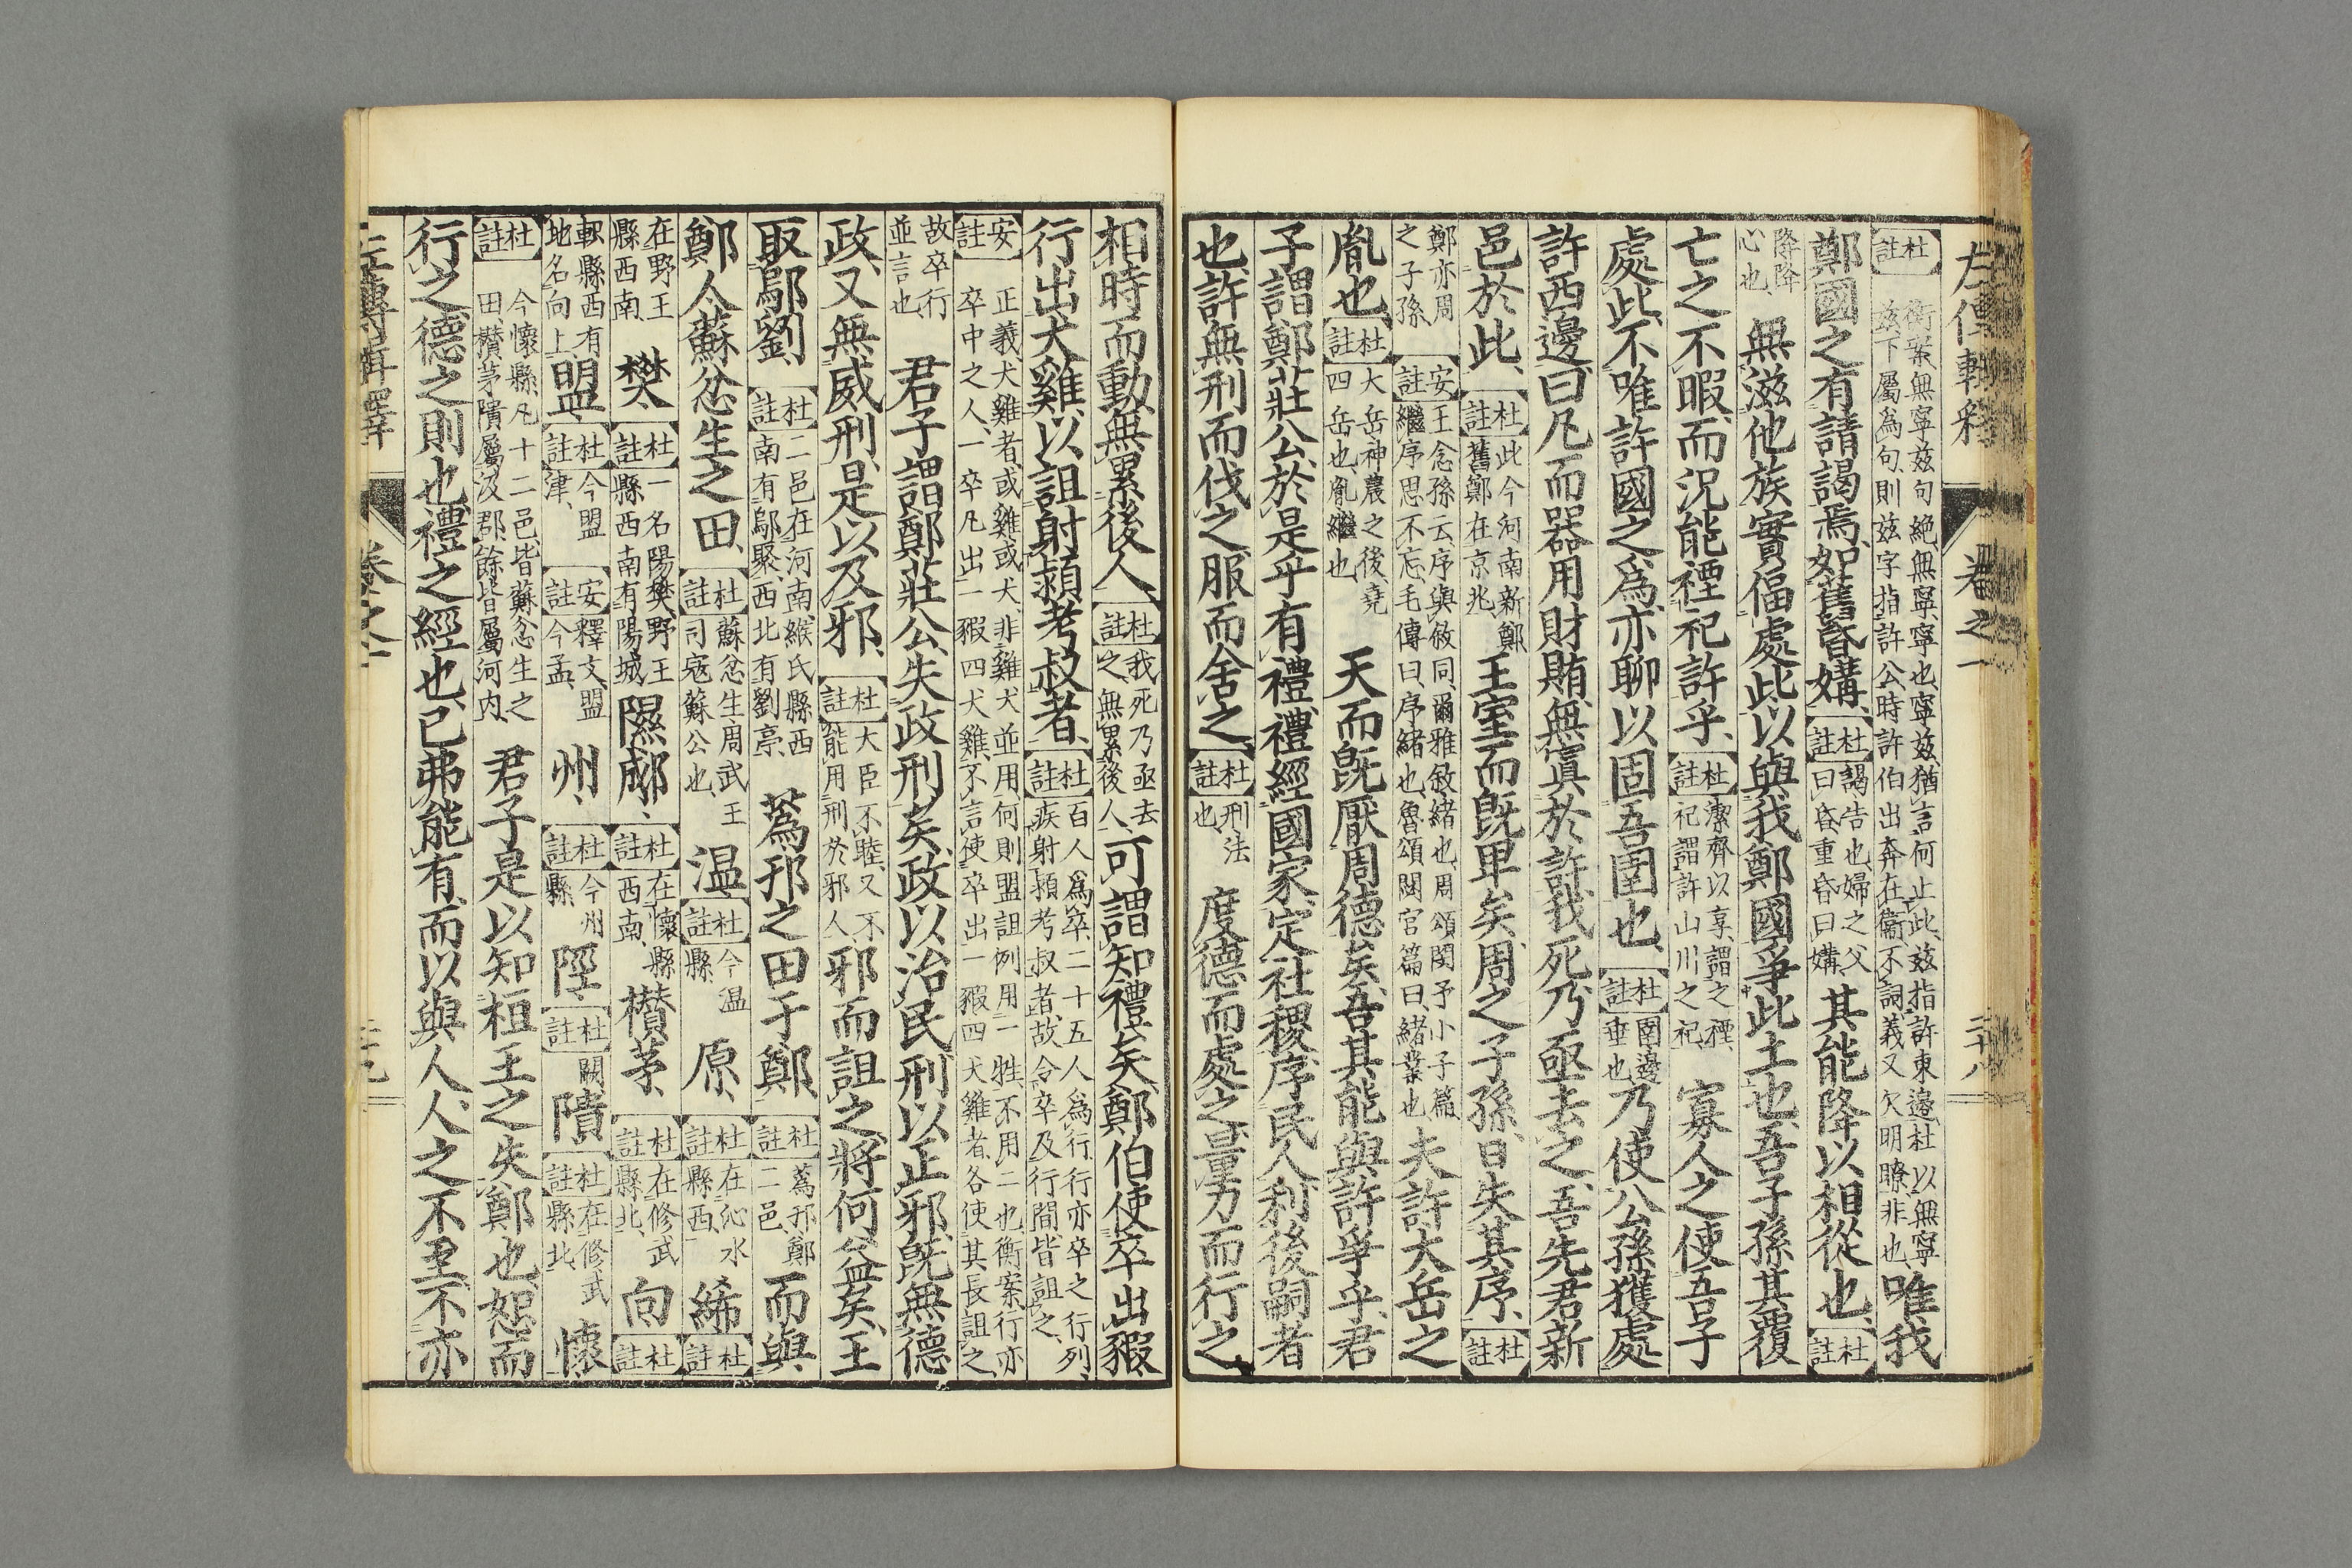 左傳輯釋 卷之一 二十八
杜註 衡案無寧茲句絶無寧寧也寧茲猶言何止此茲指許東邊杜以無寧
茲下屬爲句則茲字指許公時許伯出奔在衞不詞義又欠明瞭非也 唯我
鄭國之有請謁焉如舊昏媾 杜註 謁告也婦之父
曰昏重昏曰媾 其能降以相從也 杜註
降降
心也 無滋他族實偪處此以與我鄭國爭此土也吾子孫其覆
亡之不暇而況能禋祀許乎 杜註 潔齊以享謂之禋
祀謂許山川之祀 寡人之使吾子
處此不唯許國之爲亦聊以固吾圉也 杜註 圉邊
垂也 乃使公孫獲處
許西邊曰凡而器用財賄無寘於許我死乃亟去之吾先君新
邑於此 杜註 此今河南新鄭
舊鄭在京兆 王室而旣卑矣周之子孫日失其序 杜註
鄭亦周
之子孫 安註 王念孫云序與敘同爾雅敘緒也周頌閔予小子篇
繼序思不忘毛傳曰序緒也魯頌閟宮篇曰緒業也 夫許大岳之
胤也 杜註 大岳神農之後堯
四岳也胤繼也 天而旣厭周德矣吾其能與許爭乎君
子謂鄭莊公於是乎有禮禮經國家定社稷序民人利後嗣者
也許無刑而伐之服而舍之 杜註 刑法
也 度德而處之量力而行之
相時而動無累後人 杜註 我死乃亟去
之無累後人 可謂知禮矣鄭伯使卒出豭
行出犬雞以詛射潁考叔者 杜註 百人爲卒二十五人爲行行亦卒之行列
疾射潁考叔者故令卒及行間皆詛之
安註 正義犬雞者或雞或犬非雞犬並用何則盟詛例用一牲不用二也衡案行亦
卒中之人一卒凡出一豭四犬雞不言使卒出一豭四犬雞者各使其長詛之
故卒行
並言也 君子謂鄭莊公失政刑矣政以治民刑以正邪旣無德
政又無威刑是以及邪 杜註 大臣不睦又不
能用刑於邪人 邪而詛之將何益矣王
取鄔劉 杜註 二邑在河南緱氏縣西
南有鄔聚西北有劉亭 蔿邘之田于鄭 杜註 蔿邘鄭
二邑 而與
鄭人蘇忿生之田 杜註 蘇忿生周武王
司寇蘇公也 溫 杜註 今溫
縣 原 杜註 在沁水
縣西 絺 杜註
在野王
縣西南 樊 杜註 一名陽樊野王
縣西南有陽城 隰郕 杜註 在懷縣
西南 欑茅 杜註 在修武
縣北 向 杜註
軹縣西有
地名向上 盟 杜註 今盟
津 安註 釋文盟
今孟 州 杜註 今州
縣 陘 杜註 闕 隤 杜註 在修武
縣北 懷
杜註 今懷縣凡十二邑皆蘇忿生之
田欑茅隤屬汲郡餘皆屬河内 君子是以知桓王之失鄭也恕而
行之德之則也禮之經也己弗能有而以與人人之不至不亦
左傳輯釋 卷之一